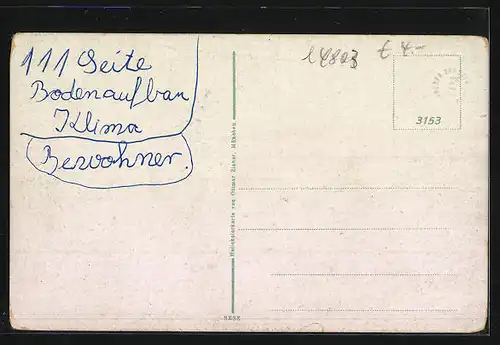 111 Seite
Bodenaufbau
Klima
Bewohner.
14803 € 4.-
3153
Heliokolorkarte von Ottmar Zieher, München